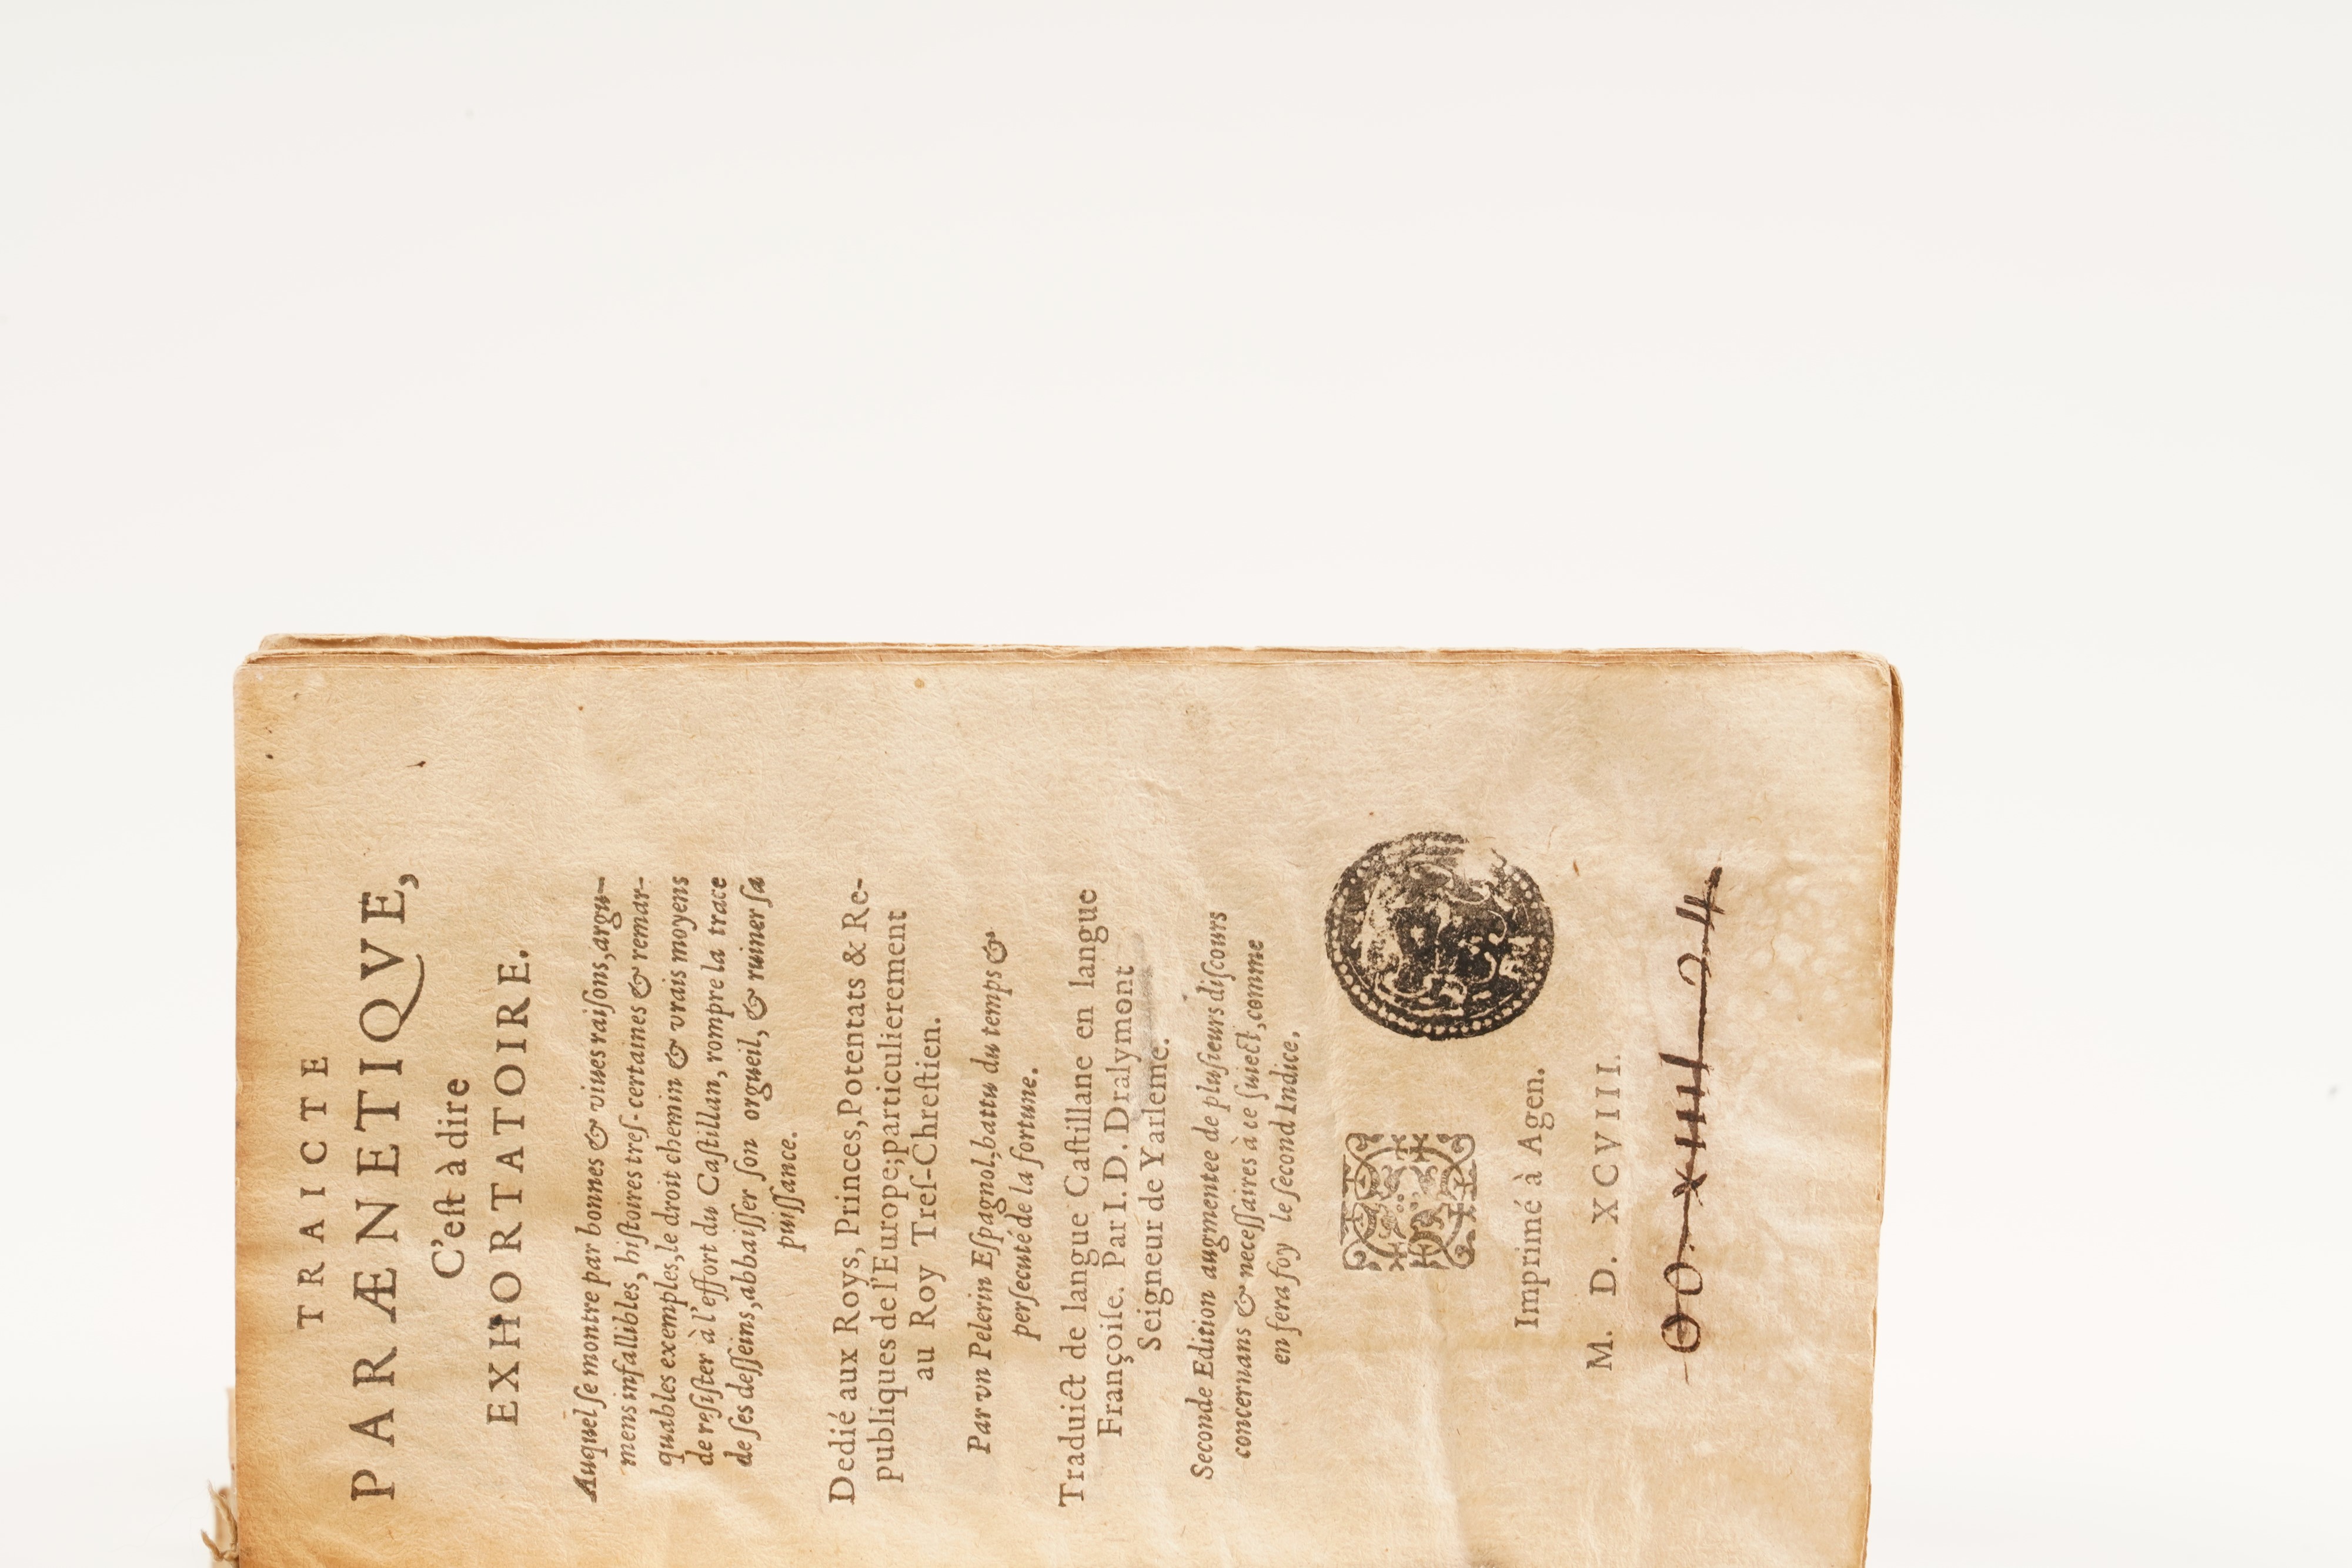 TRAICTE
PARÆNETIQVE,
C'eſt à dire
EXHORTATOIRE.
Auquel ſe montre par bonnes & viues raiſons, argu-
mens infallibles, hiſtoires treſ-certaines & remar-
quables exemples, le droit chemin & vrais moyens
de reſiſter à l'effort du Caſtillan, rompre la trace
de ſes deſſeins, abbaiſſer ſon orgueil, & ruiner ſa
puiſſance.
Dedié aux Roys, Princes, Potentats & Re-
publiques de l'Europe; particulierement
au Roy Treſ-Chreſtien.
Par vn Pelerin Eſpagnol, battu du temps &
perſecuté de la fortune.
Traduict de langue Caſtillane en langue
Françoiſe. Par I. D. Dralymont
Seigneur de Yarleme.
Seconde Edition augmentee de pluſieurs diſcours
concernans & neceſſaires à ce ſuiect, comme
en fera foy le ſecond Indice.
Imprimé à Agen.
M. D. XCVIII.
OO. XIIII 24